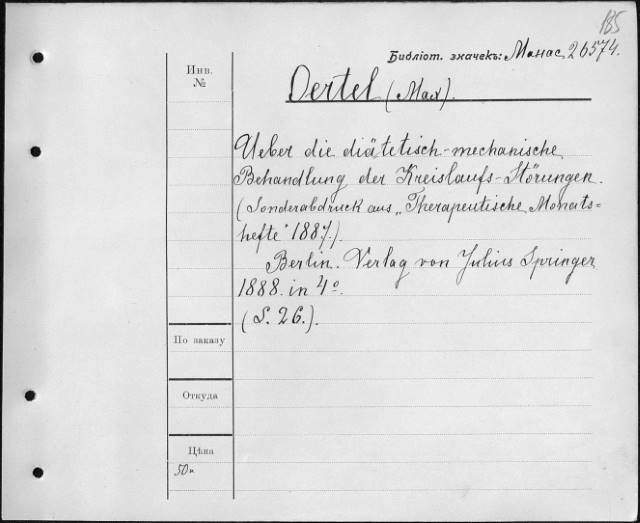 185
Библіот. значекъ: Манас. 26574.
Инв.
№
Oertel (Max).
Ueber die diätetisch-mechanische
Behandlung der Kreislaufs-Störungen.
(Sonderabdruck aus „Therapeutische Monats=
hefte" 1887.)
Berlin. Verlag von Julius Springer
1888. in 4°.
(S. 26.).
По заказу
Откуда
Цѣна
50к